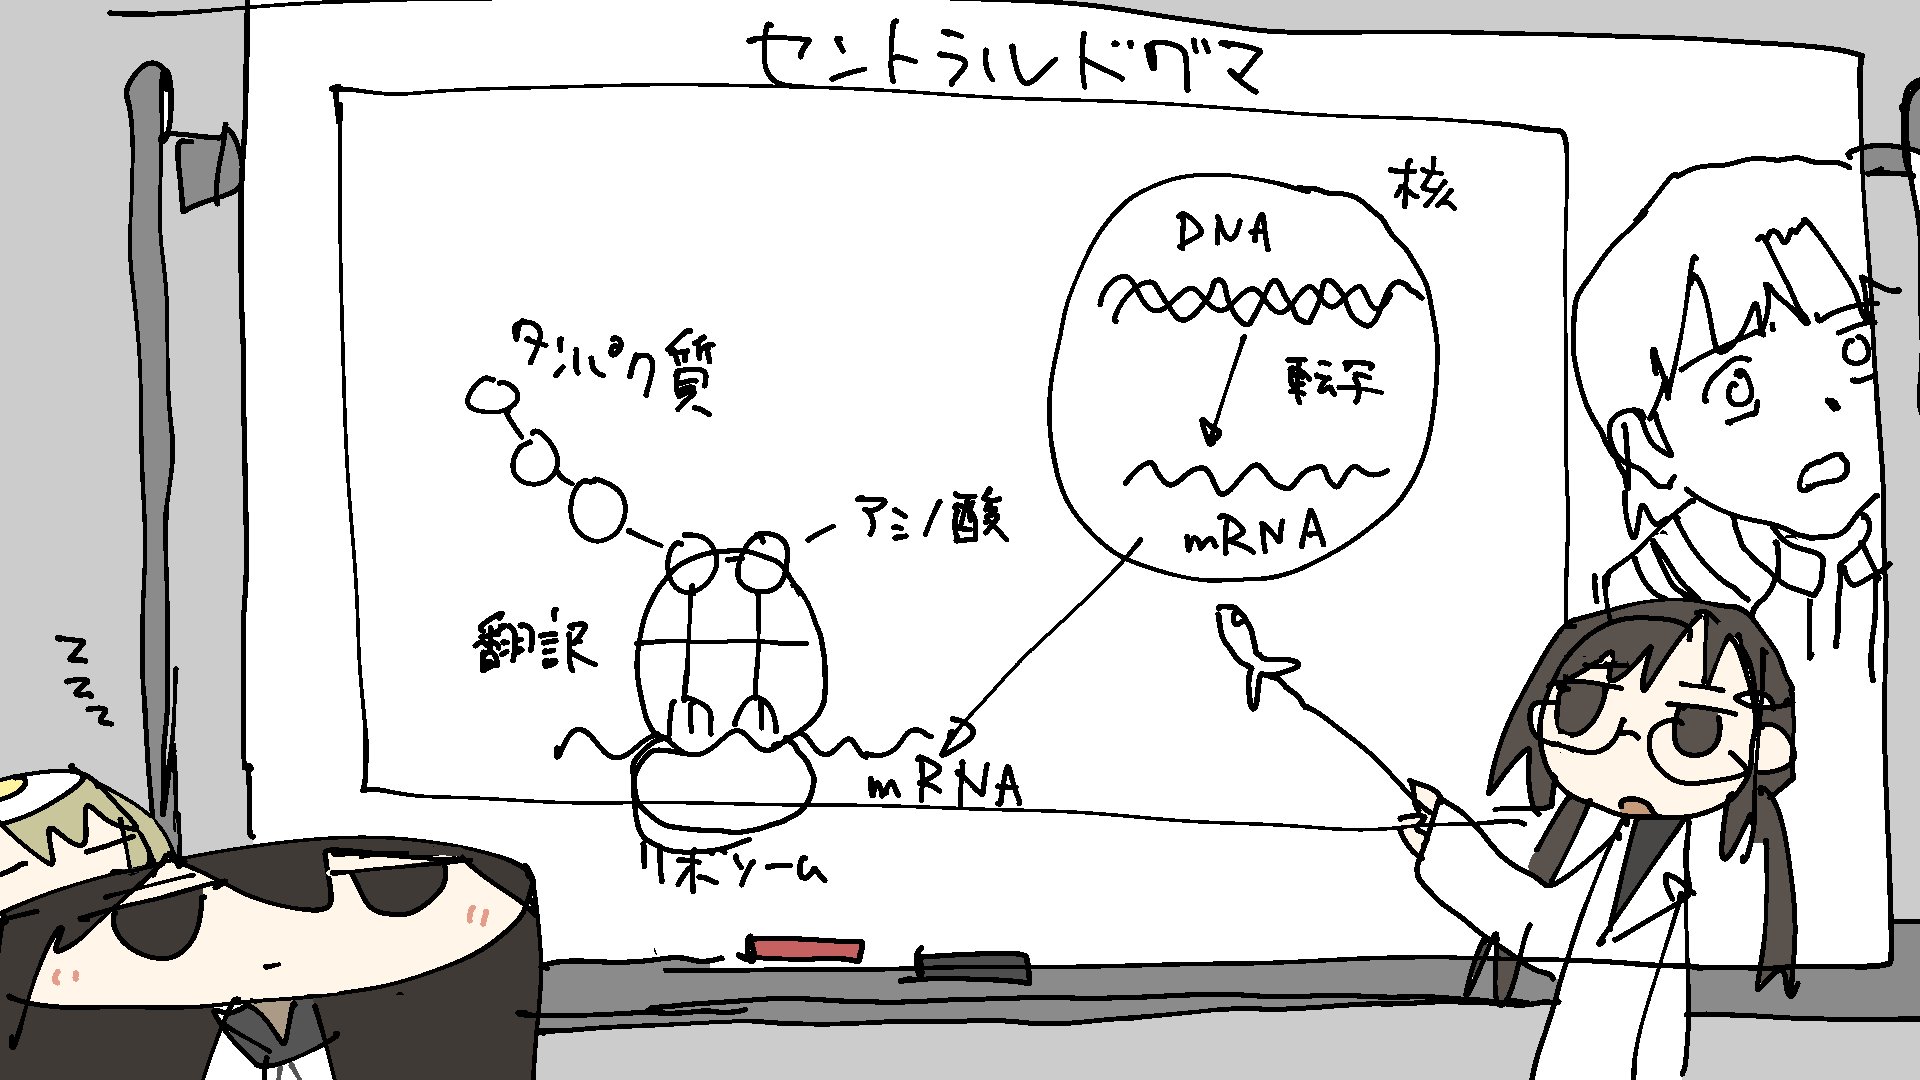 セントラルドグマ
核
DNA
転写
mRNA
タンパク質
アミノ酸
翻訳
mRNA
リボソーム
zzz